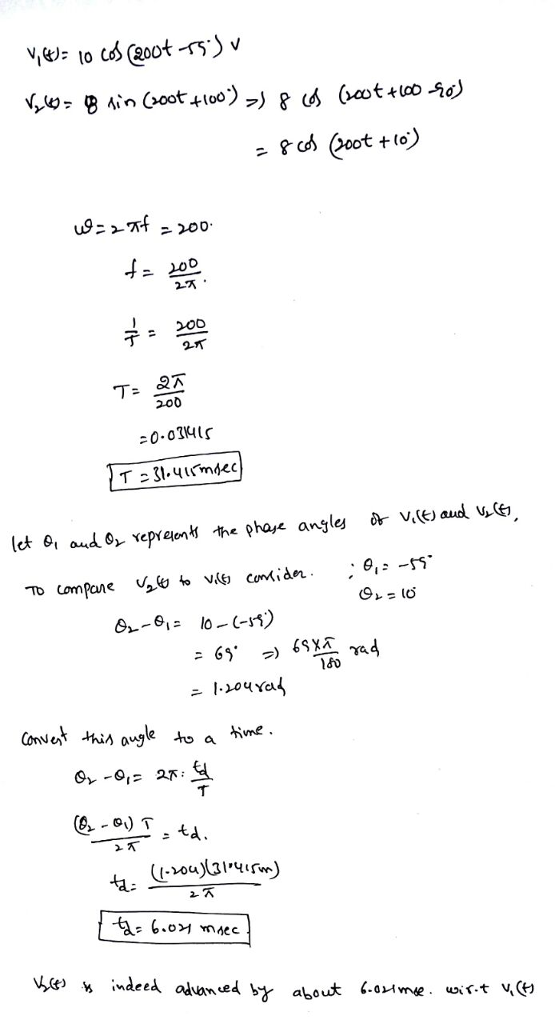 V₁(t) = 10 cos (200t - 59°) V
V₂(t) = 8 sin (200t + 100°) => 8 cos (200t + 100 - 90)
= 8 cos (200t + 10°)
ω = 2πf = 200.
f = 200/2π.
1/T = 200/2π
T = 2π/200
= 0.031415
T = 31.415 msec
let θ₁ and θ₂ represents the phase angles of V₁(t) and V₂(t),
To compare V₂(t) to V₁(t) consider. ; θ₁ = -59°
θ₂ = 10°
θ₂ - θ₁ = 10 - (-59°)
= 69° => 69×π/180 rad
= 1.204 rad
Convert this angle to a time.
θ₂ - θ₁ = 2π. td/T
(θ₂ - θ₁) T/2π = td.
td = (1.204)(31.415m)/2π
td = 6.021 msec
V₂(t) is indeed advanced by about 6.021 msec. w.r.t V₁(t)